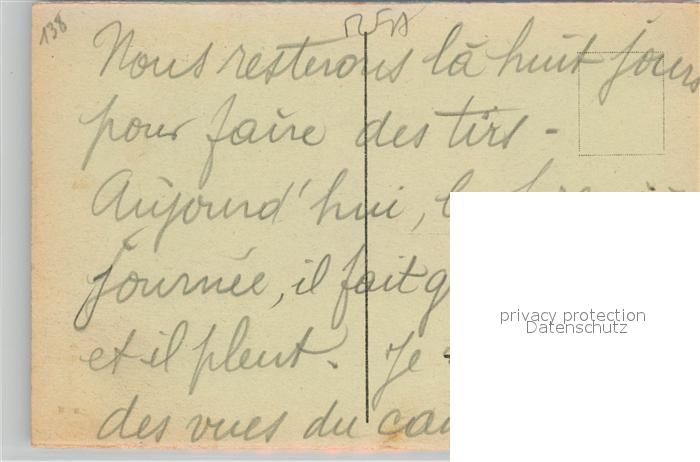 138
Nous resterons là huit jours
pour faire des tirs -
Aujourd'hui, la
journée, il fait
et il pleut. Je
des vues du
privacy protection
Datenschutz